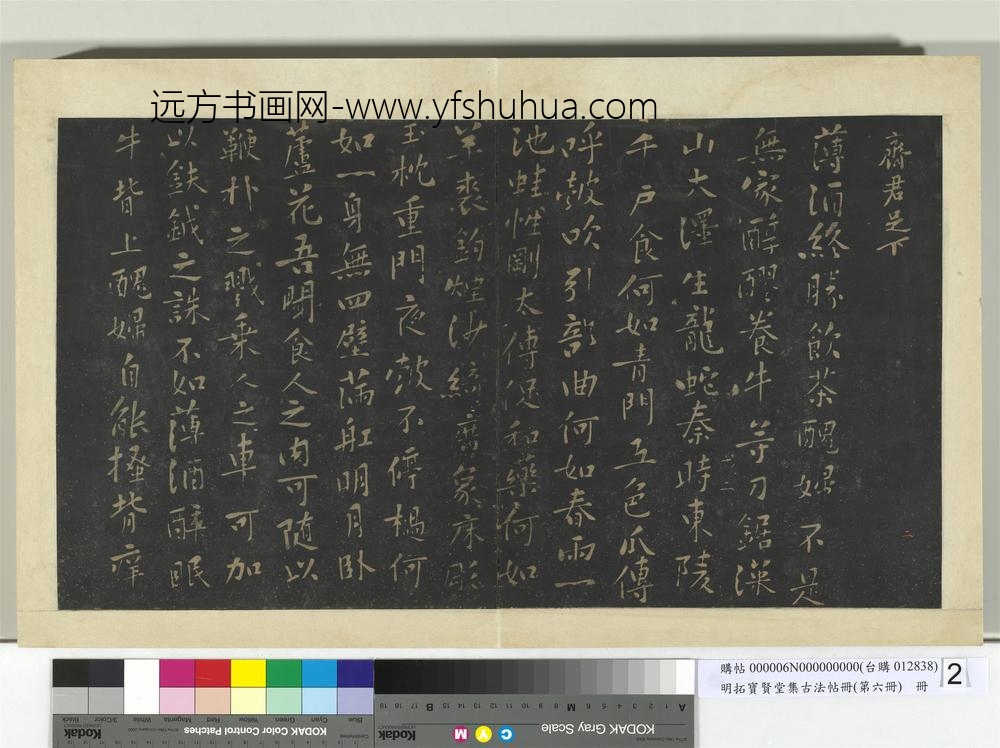 远方书画网-www.yfshuhua.com
齋君足下
薄酒終勝飲茶醜婦不是
無家醇醪養牛等刀鋸深
山大澤生龍蛇秦時東陵
千戶食何如青門五色瓜傳
呼鼓吹引部曲何如春雨一
池蛙性剛太傅促和藥何如
羊裘釣煙沙綺席象床彫
玉枕重門夜鼓不停檛何
如一身無四壁滿舡明月卧
蘆花吾聞食人之肉可隨以
鞭朴之戮乘人之車可加
以鈇鉞之誅不如薄酒醉眠
牛背上醜婦自能搔背痒
購帖 000006N000000000(台購 012838)
明拓寶賢堂集古法帖冊(第六冊) 冊
2
Kodak
KODAK Color Control Patches
Blue Cyan Green Yellow Red Magenta White 3/Color Black
Kodak
KODAK Gray Scale
C Y M
A 1 2 3 4 5 6 M 8 9 10 11 12 13 14 15 B 17 18 19